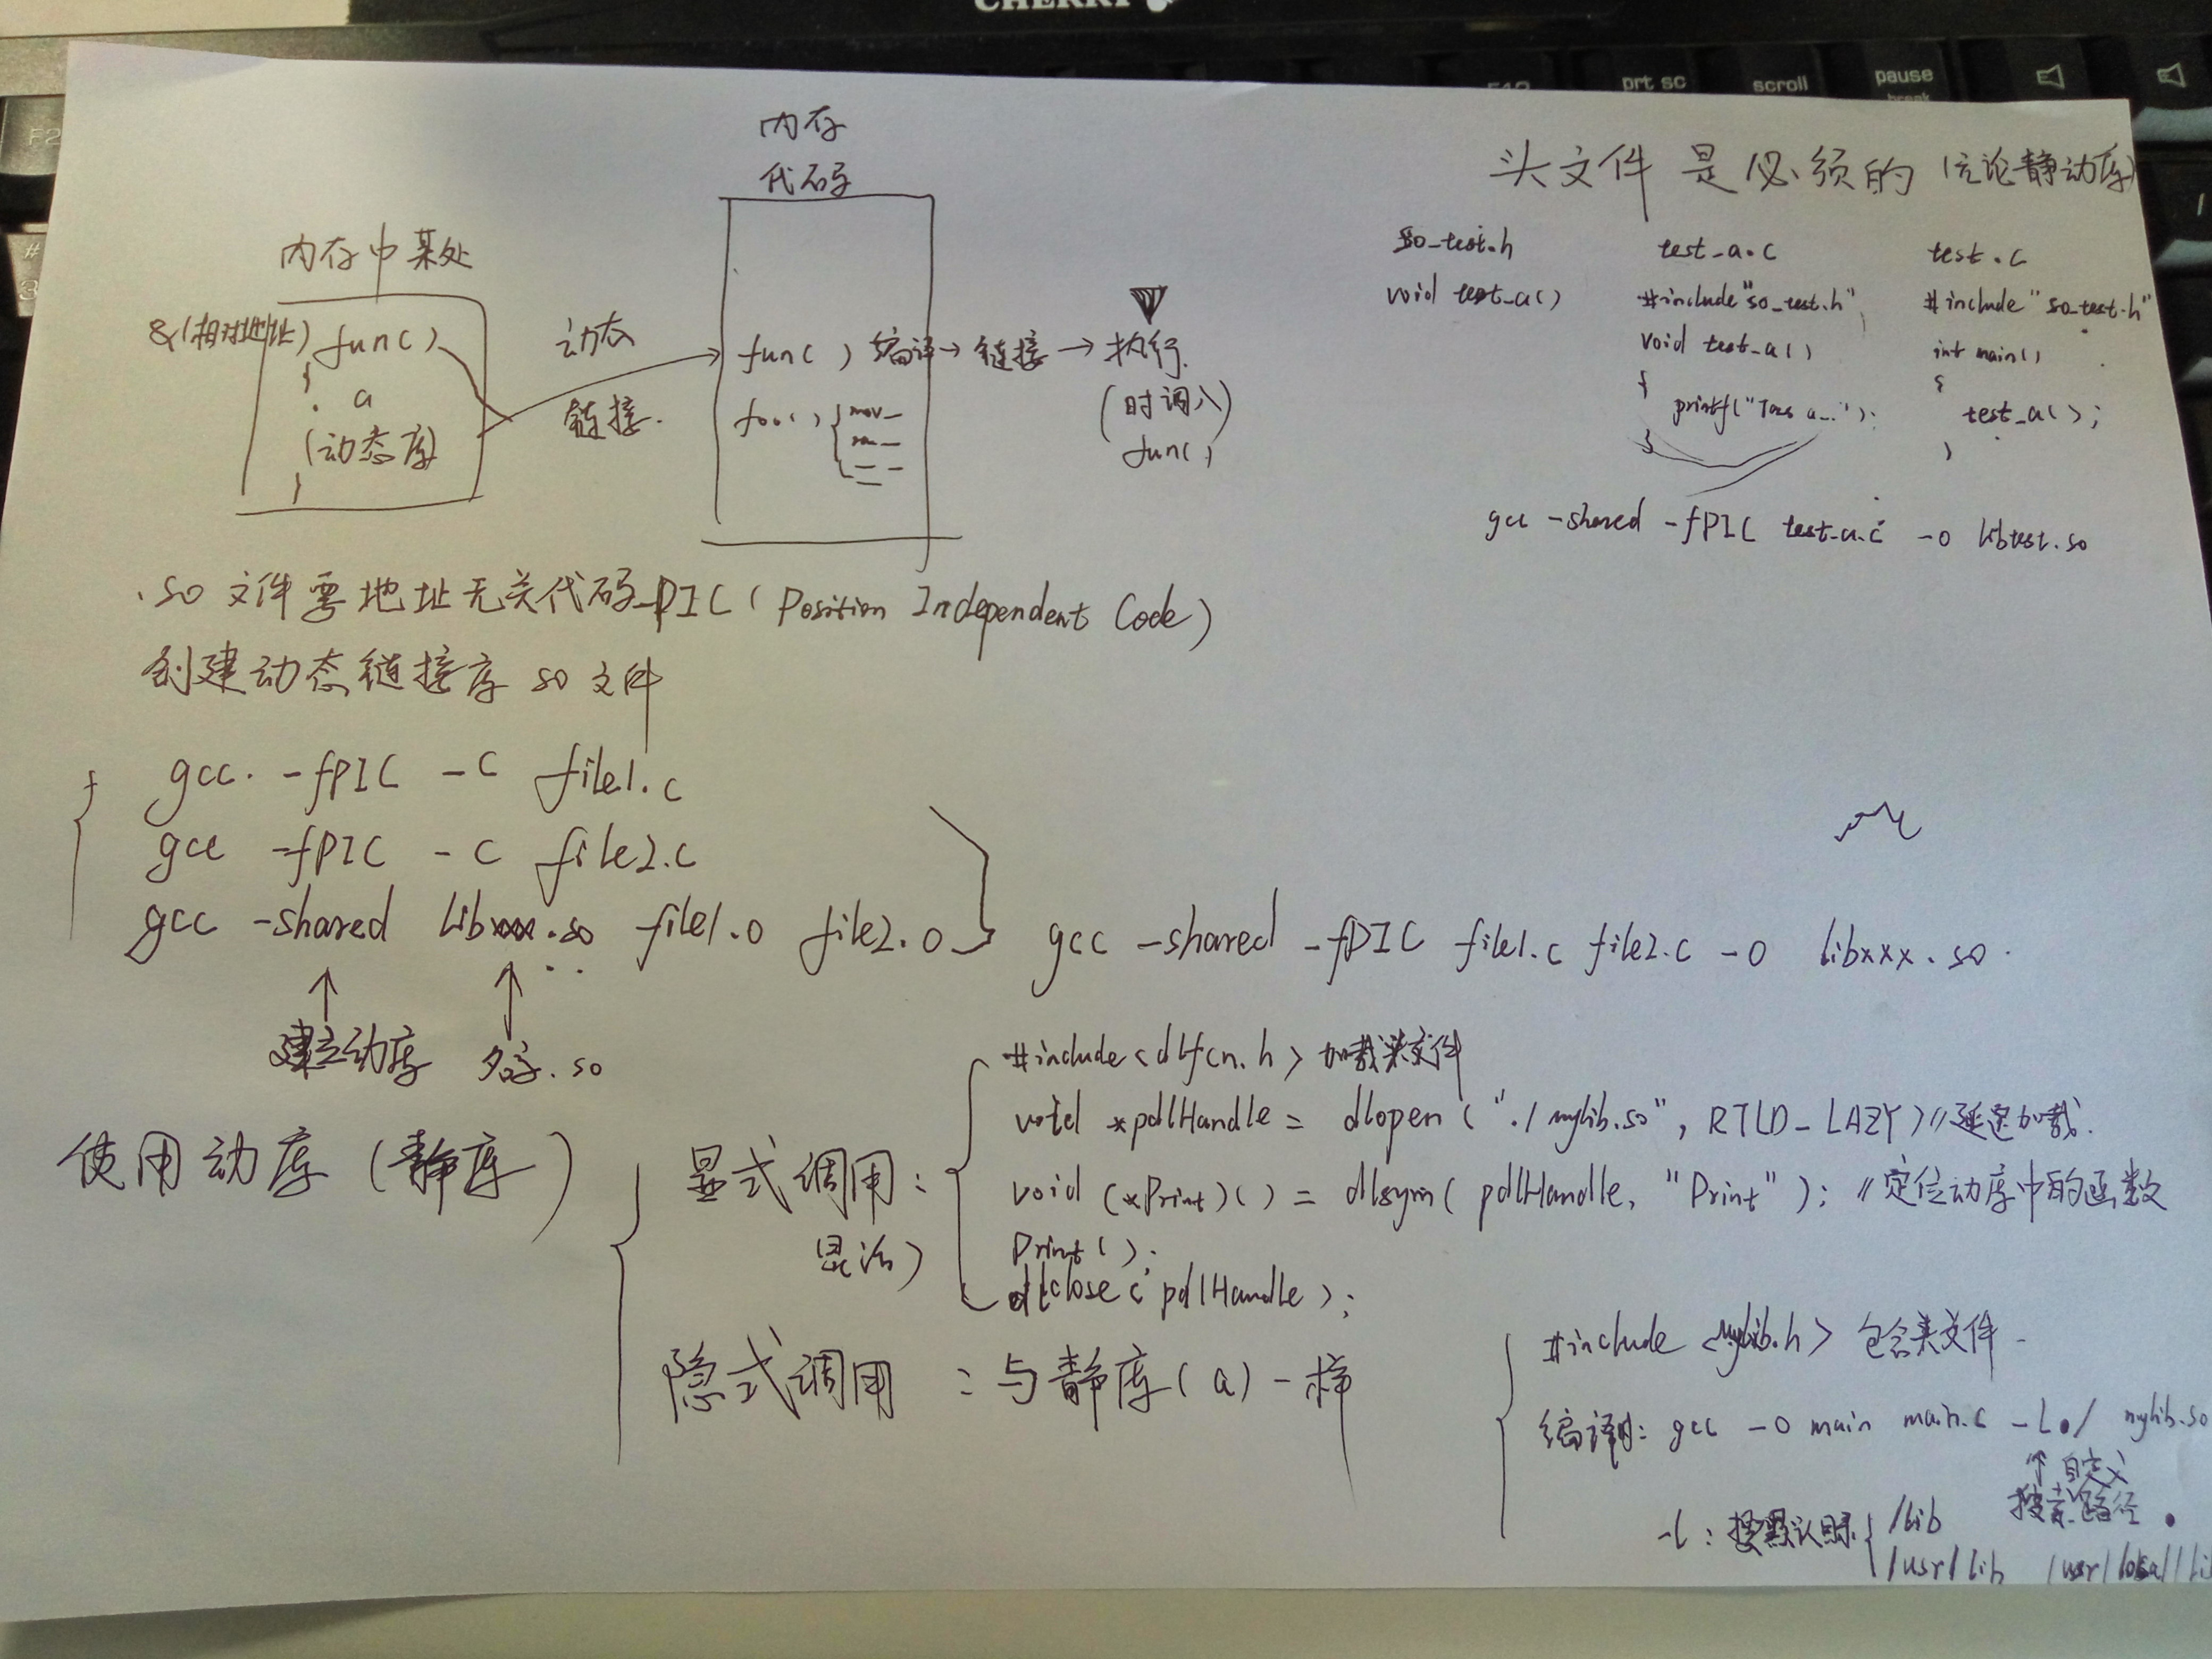 CHERRY
prt sc
scroll
pause
内存
代码
内存中某处
&(相对地址) func()
{
a
(动态库)
}
动态
链接.
func() 编译→链接→执行.
(时调入)
func()
mov
头文件 是必须的 (无论静动库)
so_test.h
void test_a()
test_a.c
#include"so_test.h"
void test_a()
{
printf("
}
test.c
#include "so_test.h"
int main()
{
test_a();
}
gcc -shared -fPIC test_a.c -o libtest.so
.so 文件需地址无关代码-PIC (Position Independent Code)
创建动态链接库 so 文件
gcc. -fPIC -c file1.c
gcc -fPIC -c file2.c
gcc -shared libxxx.so file1.o file2.o
gcc -shared -fPIC file1.c file2.c -o libxxx.so.
↑ ↑
建立动库 名字.so
使用动库(静库)
显式调用:
#include<dlfcn.h> 加载头文件
void *pdlHandle = dlopen("./mylib.so", RTLD_LAZY)//延迟加载.
void (*Print)() = dlsym(pdlHandle, "Print"); //定位动库中的函数
Print();
dlclose(pdlHandle);
隐式调用 : 与静库(a)一样
#include <mylib.h> 包含头文件
编译时: gcc -o main main.c -L./ mylib.so
↑自定义
搜索路径.
-l: 搜默认目录 { /lib
/usr/lib /usr/local/li